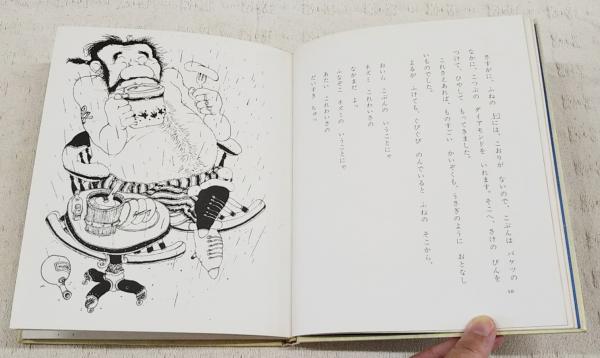 さすがに、ふねの 上には、こおりが ないので、こぶんは バケツの
なかに、こつぶの ダイアモンドを いれます。そこへ、さけの びんを
つけて、ひやして もってきました。
これさえあれば、ものすごい かいぞくも、うさぎのように おとなし
いものでした。
よるが ふけても、ぐびぐび のんでいると ふねの そこから、
おいら こぶんの いうことにゃ
ネズミ これわいさの
なかまだ よっ
ふなぞこ ネズミの いうことにゃ
あたい これわいさの
だいすき ちゅっ
10